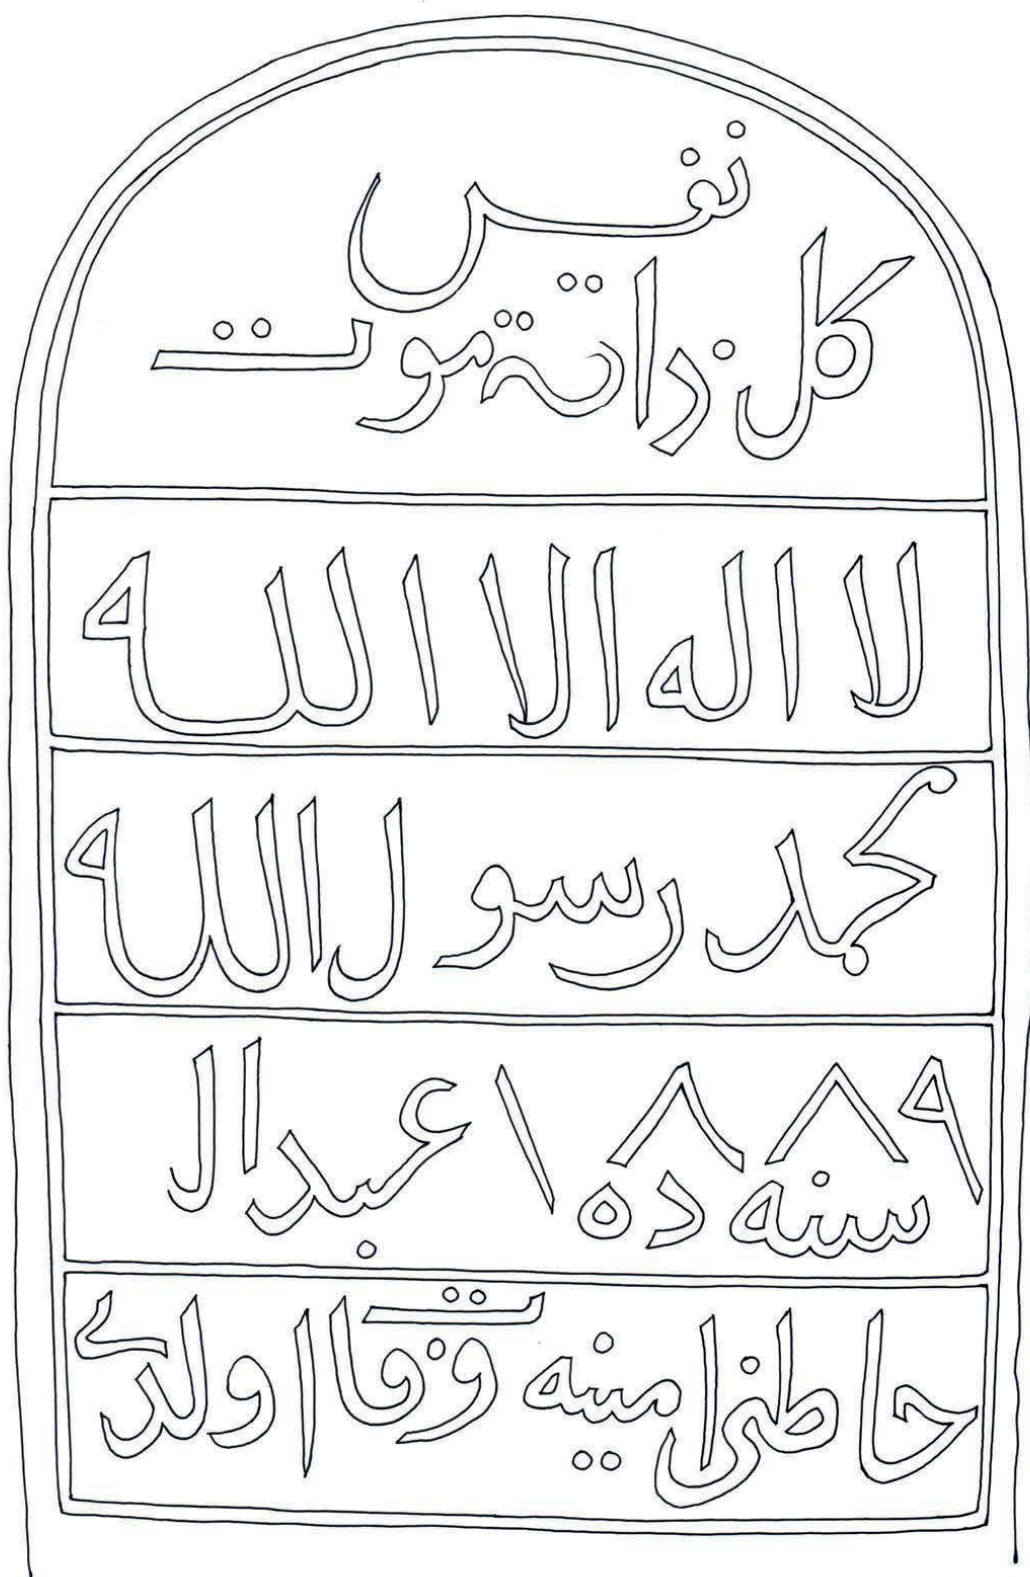 نفس
كل ذاتة موت
لا اله الا الله
محمد رسول الله
١٨٨٩
سنه ده عبدال
امينه وفات اولدى